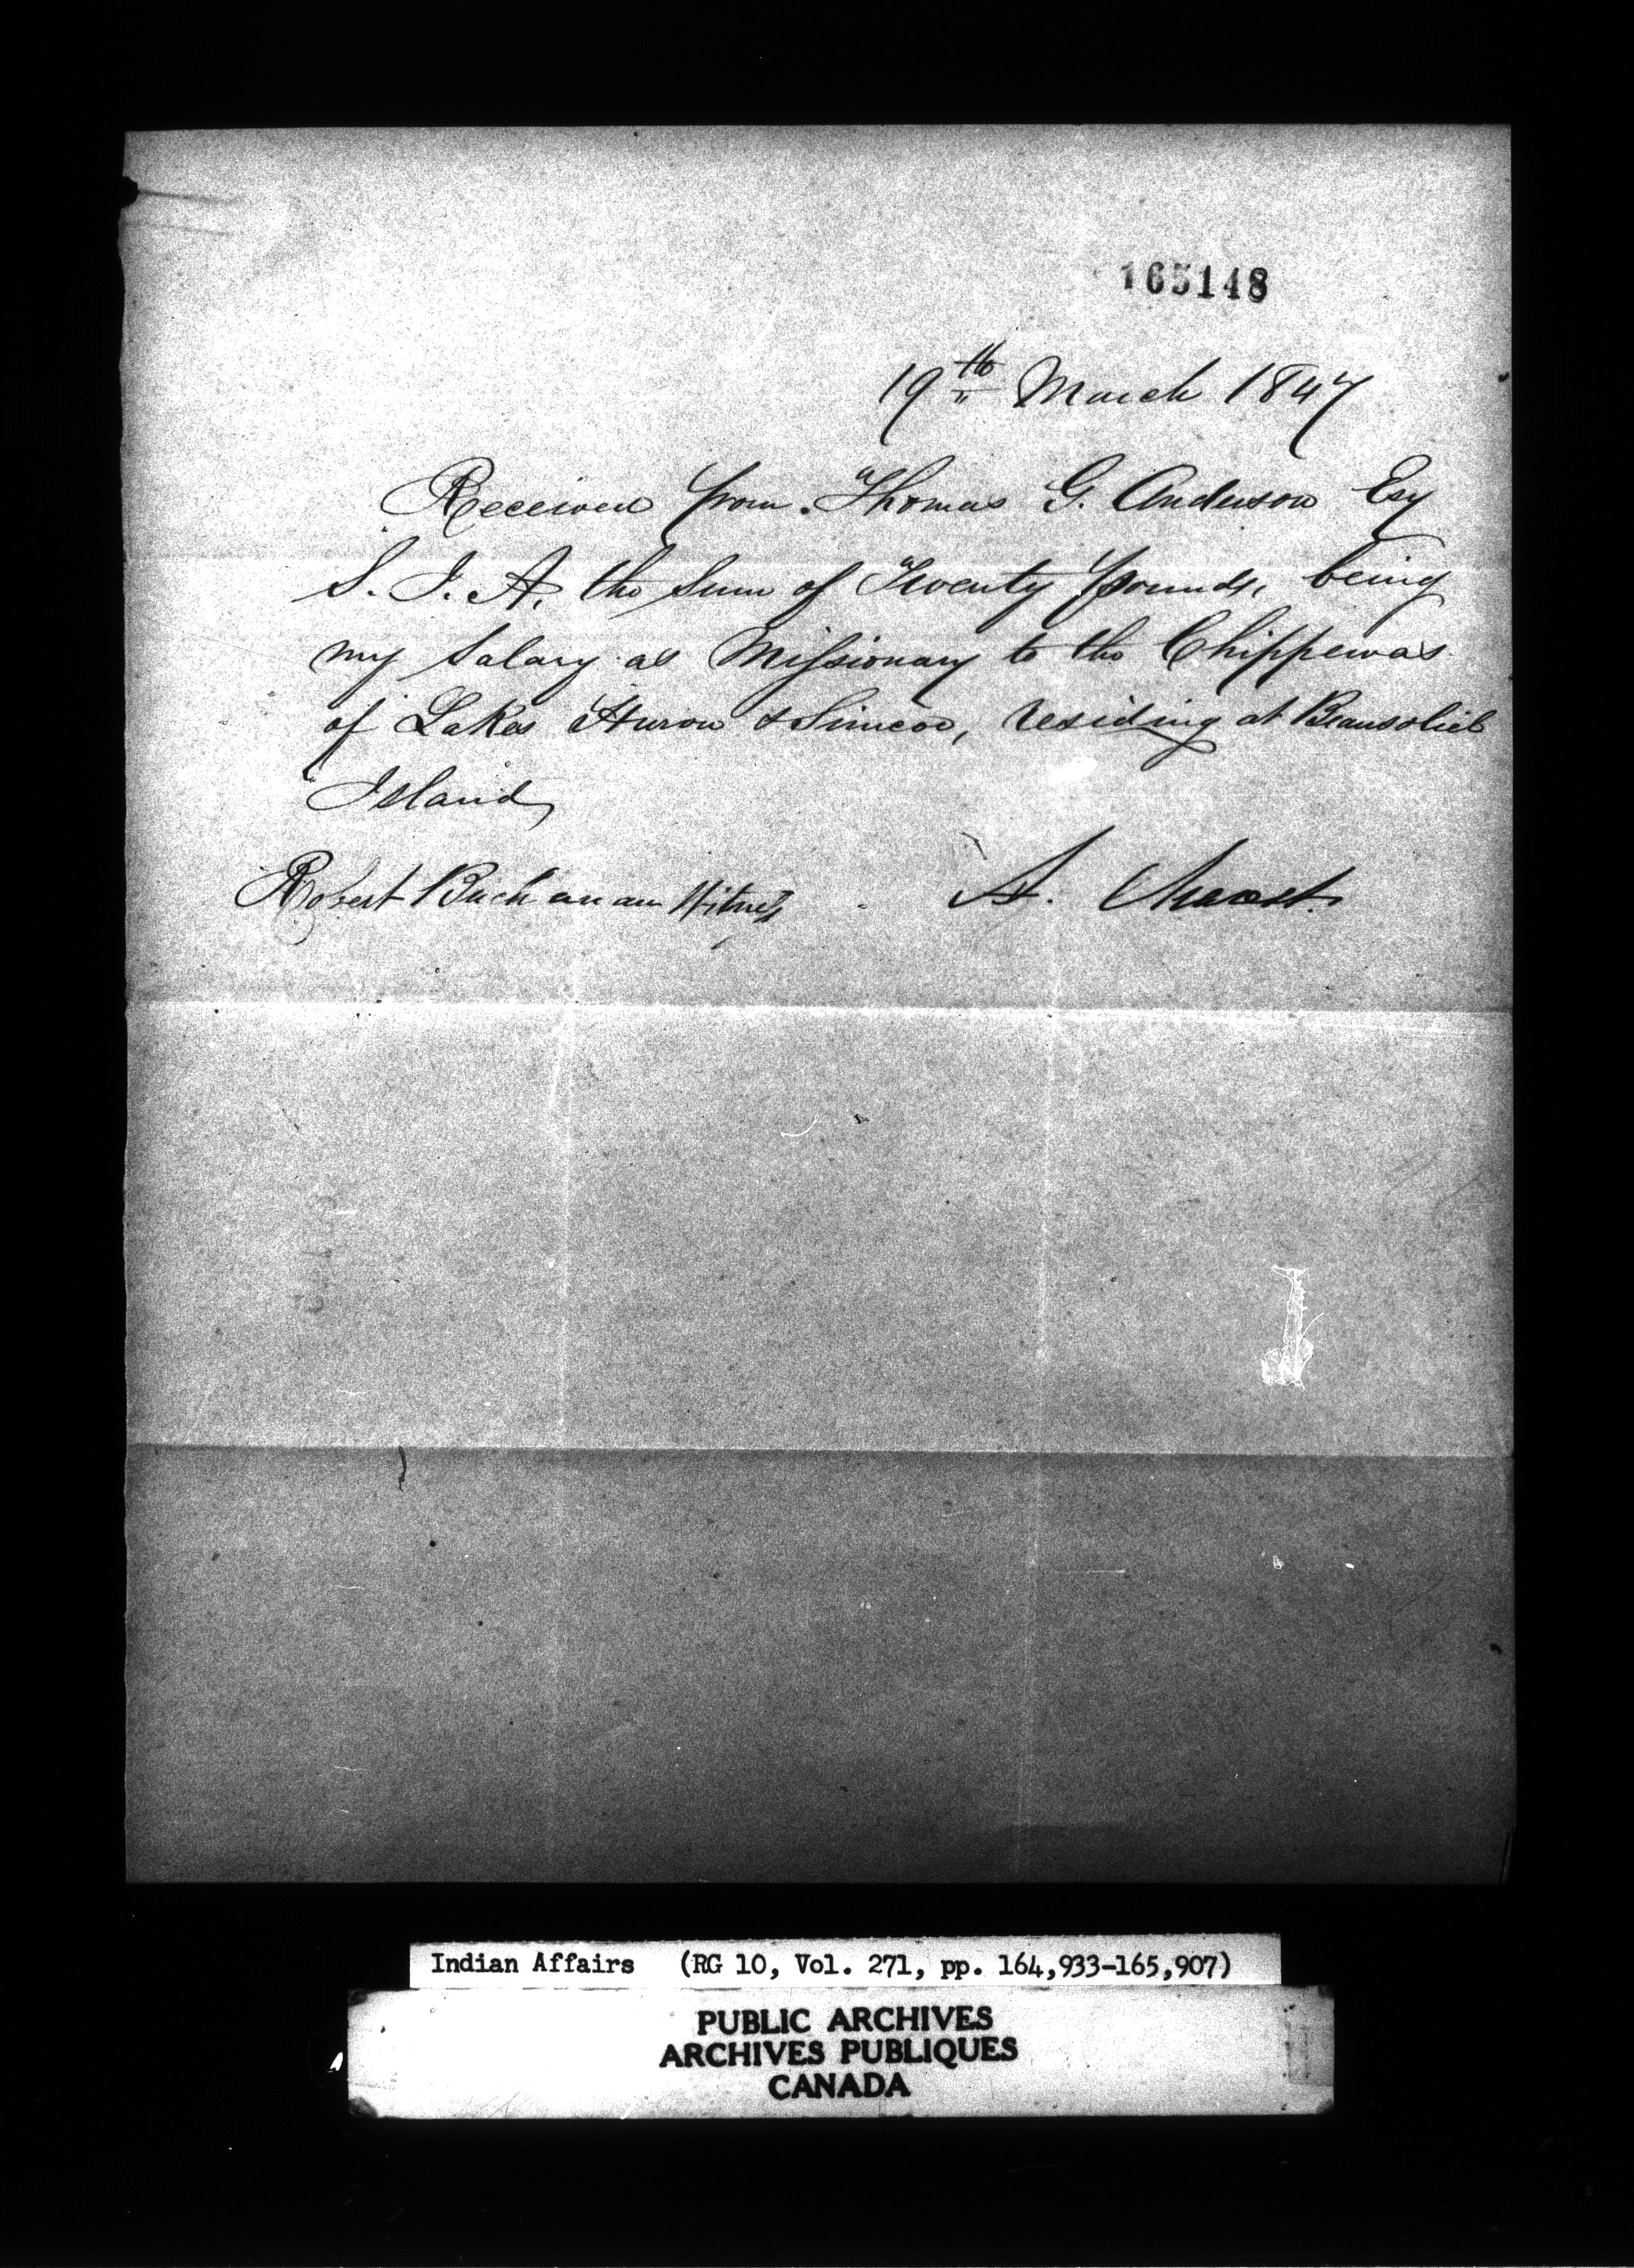 165148
19th March 1847
Received from Thomas G. Anderson Esq
S. I. A. the Sum of Twenty pounds, being
my Salary as Missionary to the Chippewas
of Lakes Huron & Simcoe, residing at Beausoliel
Island,
Robert Buchanan Witness A.
Indian Affairs (RG 10, Vol. 271, pp. 164,933-165,907)
PUBLIC ARCHIVES
ARCHIVES PUBLIQUES
CANADA